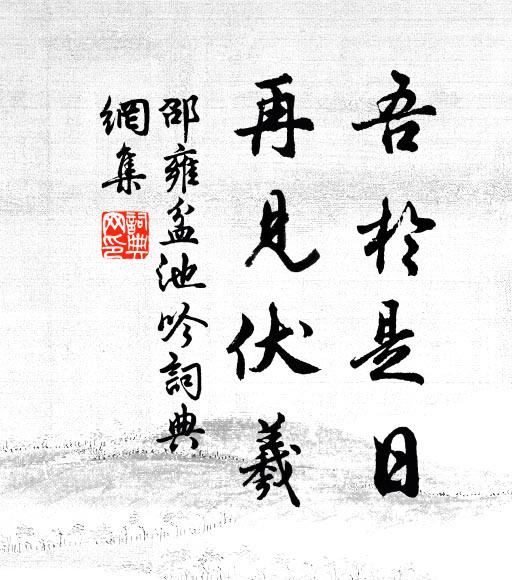 吾於是日
再見伏羲
邵雍盆池吟詞典
網集
詞典
网印